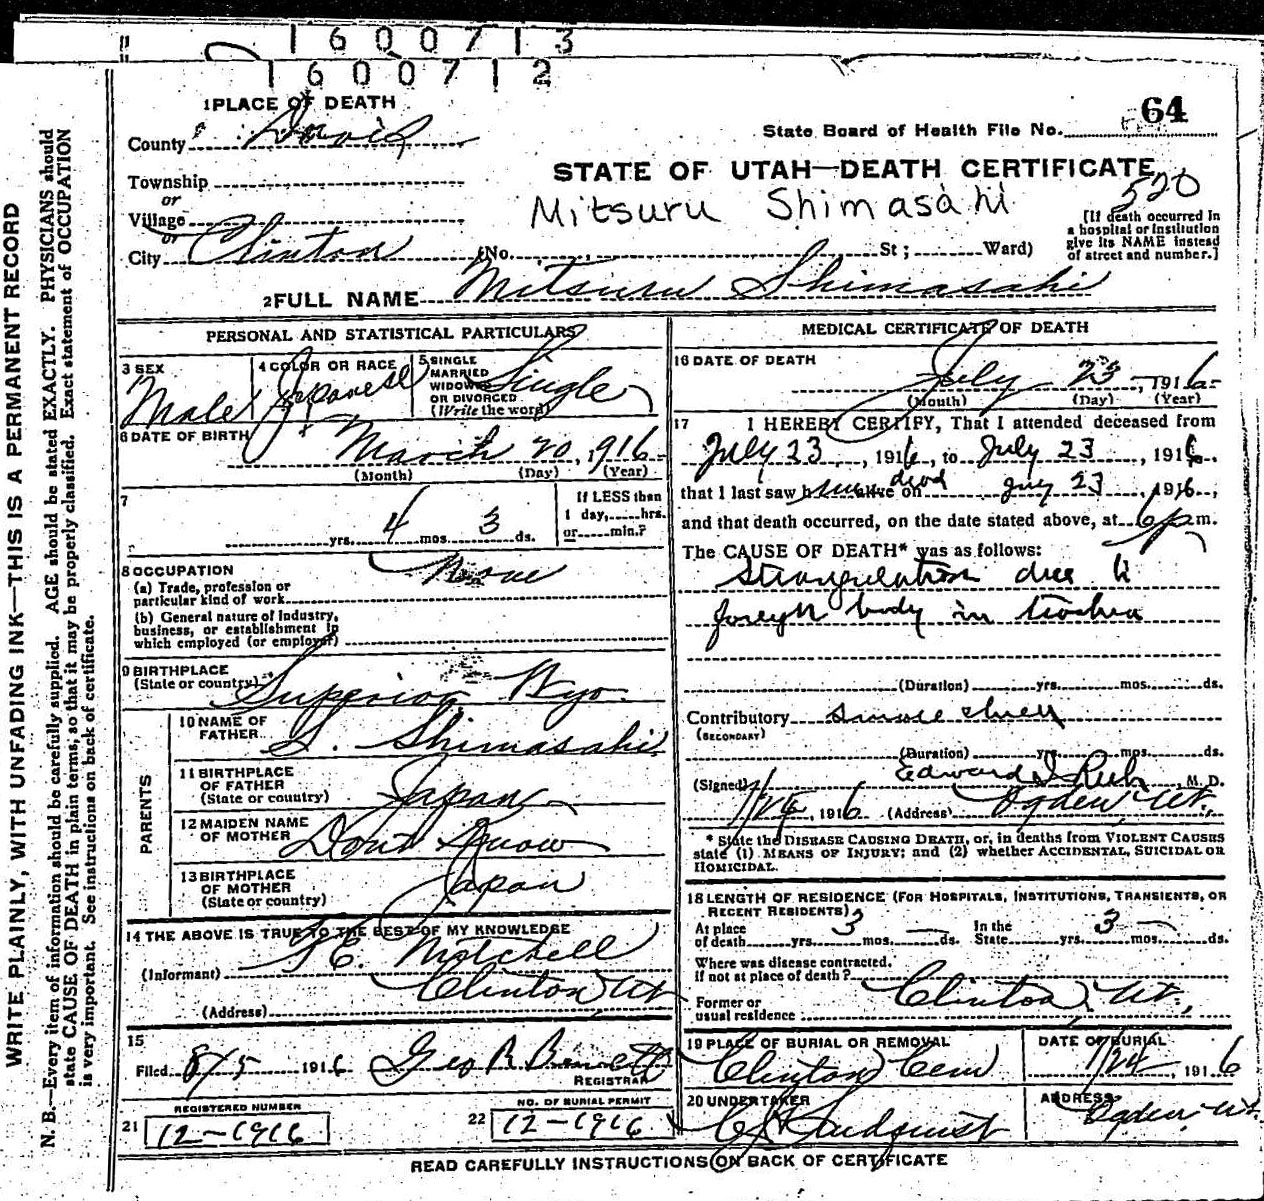 1600713
1600712
1 PLACE OF DEATH
County Davis
Township
or
Village
or
City Clinton
(No. St; Ward)
State Board of Health File No. 64
STATE OF UTAH—DEATH CERTIFICATE
520
Mitsuru Shimasahi
[If death occurred in
a hospital or institution
give its NAME instead
of street and number.]
2 FULL NAME Mitsuru Shimasahi
PERSONAL AND STATISTICAL PARTICULARS
3 SEX
Male
4 COLOR OR RACE
Japanese
5 SINGLE
MARRIED
WIDOWED
OR DIVORCED
(Write the word)
Single
6 DATE OF BIRTH
March 20, 1916
(Month) (Day) (Year)
7
yrs. 4 mos. 3 ds.
If LESS than
1 day, hrs.
or min.?
8 OCCUPATION
None
(a) Trade, profession or
particular kind of work
(b) General nature of Industry,
business, or establishment in
which employed (or employer)
9 BIRTHPLACE
(State or country)
Superior Wyo.
PARENTS
10 NAME OF
FATHER
S. Shimasahi
11 BIRTHPLACE
OF FATHER
(State or country)
Japan
12 MAIDEN NAME
OF MOTHER
Dont Know
13 BIRTHPLACE
OF MOTHER
(State or country)
Japan
14 THE ABOVE IS TRUE TO THE BEST OF MY KNOWLEDGE
(Informant) Mitchell
(Address) Clinton Ut
15
Filed 8/5 1916 Geo R Bennett
REGISTRAR
REGISTERED NUMBER
21 12-1916
NO. OF BURIAL PERMIT
22 12-1916
MEDICAL CERTIFICATE OF DEATH
16 DATE OF DEATH
July 23, 1916
(Month) (Day) (Year)
17 I HEREBY CERTIFY, That I attended deceased from
July 23, 1916, to July 23, 1916.
that I last saw h alive on dead July 23, 1916,
and that death occurred, on the date stated above, at 6 p m.
The CAUSE OF DEATH* was as follows:
Strangulation due to
foreign body in trachea
(Duration) yrs. mos. ds.
Contributory
(SECONDARY)
(Duration) yrs. mos. ds.
(Signed) Edward I. M. D.
7/24, 1916 (Address) Ogden Ut.
* State the DISEASE CAUSING DEATH, or, in deaths from VIOLENT CAUSES
state (1) MEANS OF INJURY; and (2) whether ACCIDENTAL, SUICIDAL OR
HOMICIDAL.
18 LENGTH OF RESIDENCE (FOR HOSPITALS, INSTITUTIONS, TRANSIENTS, OR
RECENT RESIDENTS)
At place
of death yrs. 3 mos. ds. In the
State yrs. 3 mos. ds.
Where was disease contracted.
if not at place of death?
Former or
usual residence Clinton, Ut.,
19 PLACE OF BURIAL OR REMOVAL
Clinton Cem
DATE OF BURIAL
7/24, 1916
20 UNDERTAKER
Lindquist
ADDRESS
Ogden Ut.
READ CAREFULLY INSTRUCTIONS ON BACK OF CERTIFICATE
WRITE PLAINLY, WITH UNFADING INK—THIS IS A PERMANENT RECORD
N. B.—Every item of information should be carefully supplied. AGE should be stated EXACTLY. PHYSICIANS should
state CAUSE OF DEATH in plain terms, so that it may be properly classified. Exact statement of OCCUPATION
is very important. See instructions on back of certificate.